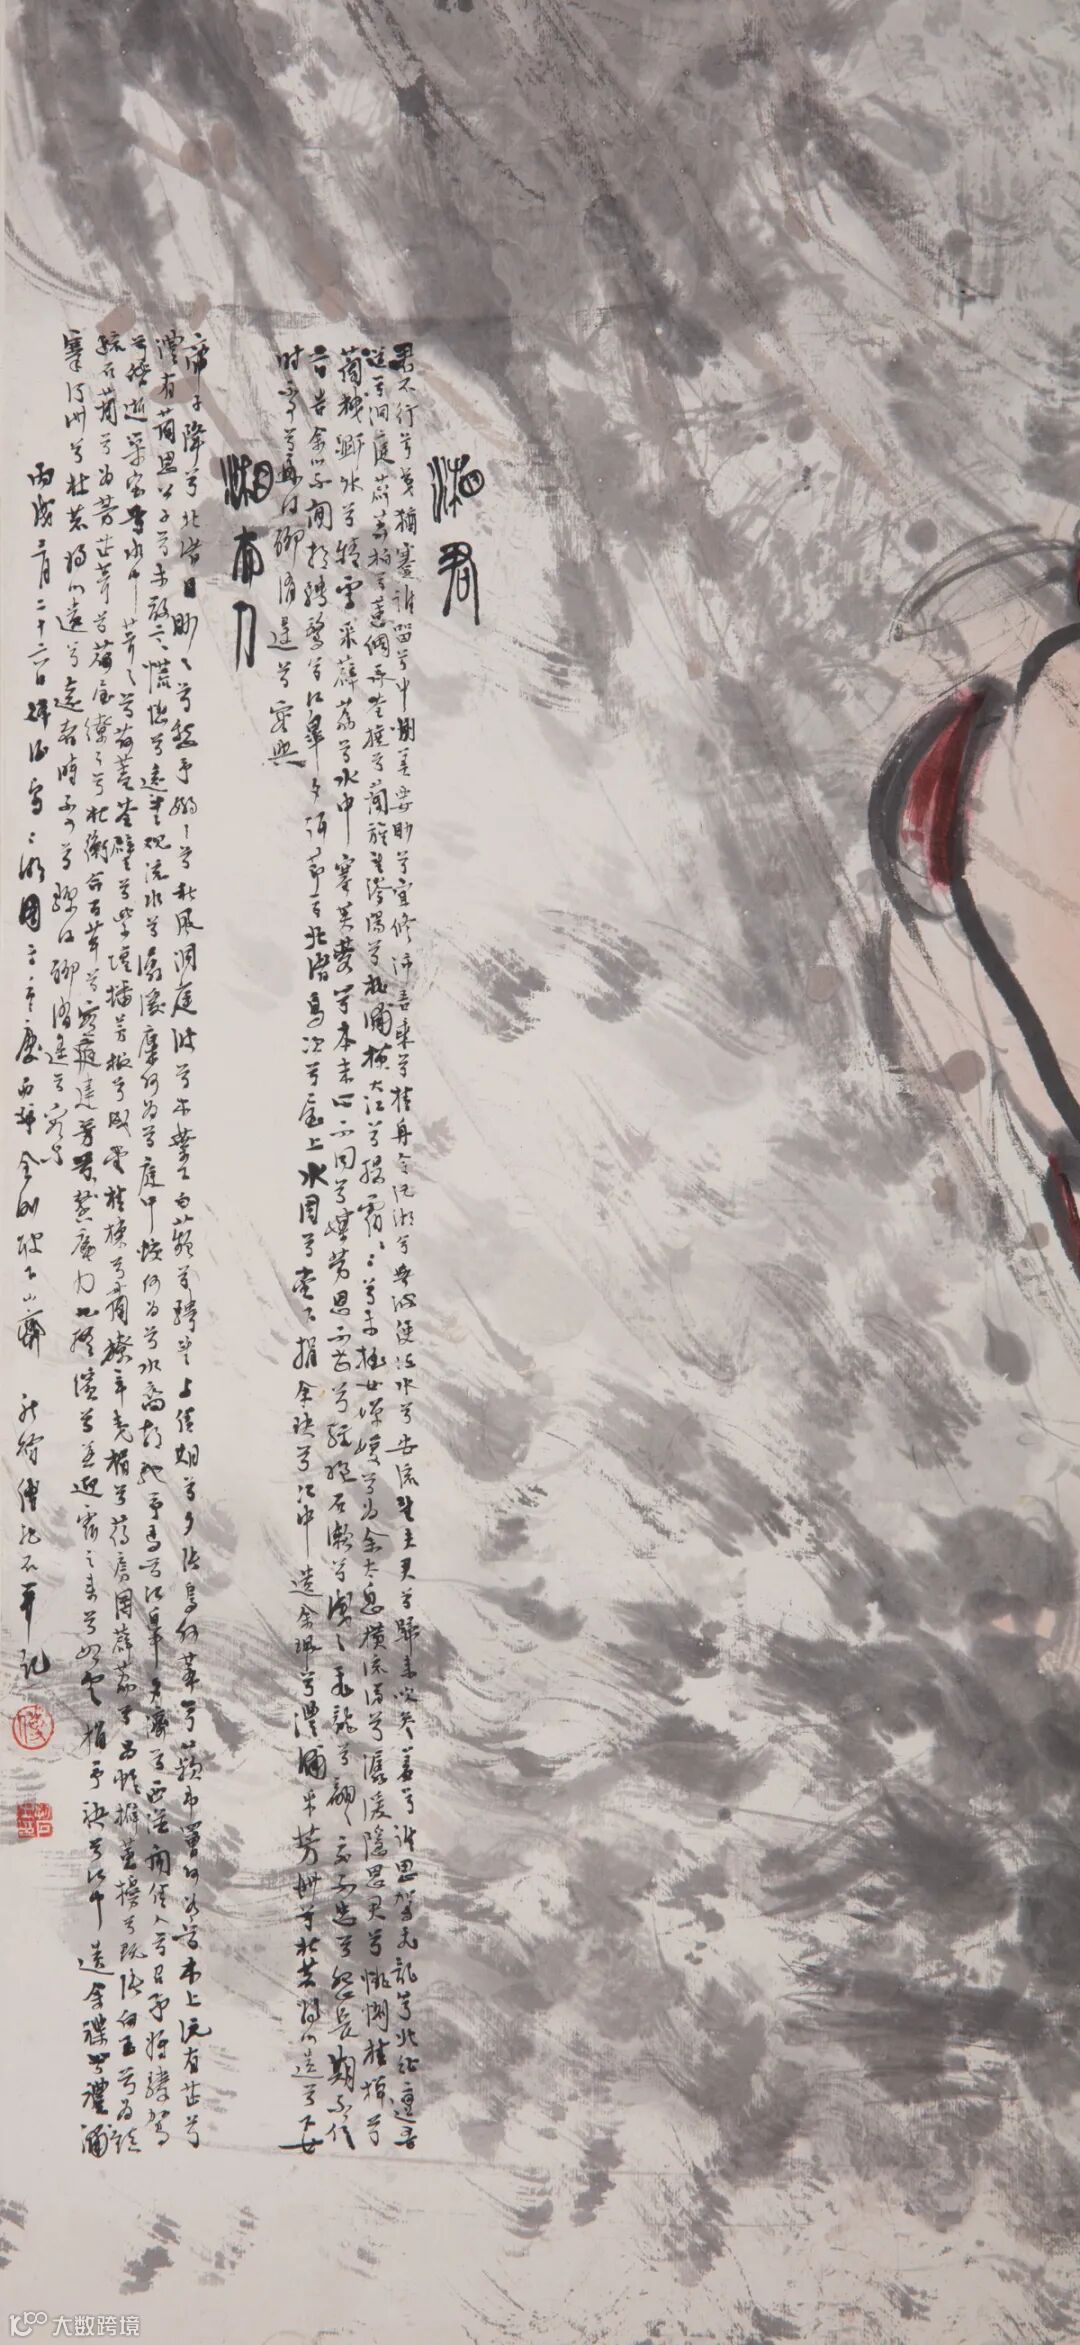 湘君
君不行兮夷猶蹇誰留兮中洲美要眇兮宜修沛吾乘兮桂舟令沅湘兮無波使江水兮安流望夫君兮歸來吹參差兮誰思駕飛龍兮北征邅吾
道兮洞庭薜荔柏兮蕙綢承荃橈兮蘭旌望涔陽兮極浦橫大江兮揚靈〻〻兮未極女嬋媛兮為余太息橫流涕兮潺湲隱思君兮悱惻桂棹兮
蘭枻斲冰兮積雪采薜荔兮水中搴芙蓉兮木末心不同兮媒勞恩不甚兮輕絕石瀨兮淺〻飛龍兮翩〻交不忠兮怨長期不信
兮告余以不閒朝騁騖兮江皋夕弭節兮北渚鳥次兮屋上水周兮堂下捐余玦兮江中遺余珮兮澧浦采芳洲兮杜若將以遺兮下女
時不可兮再得聊逍遙兮容與
湘夫人
帝子降兮北渚目眇〻兮愁予嫋〻兮秋風洞庭波兮木葉下白薠兮騁望與佳期兮夕張鳥何萃兮蘋中罾何為兮木上沅有芷兮
澧有蘭思公子兮未敢言慌惚兮遠望觀流水兮潺湲麋何為兮庭中蛟何為兮水裔朝馳予馬兮江皋夕濟兮西澨聞佳人兮召予將騰駕
兮偕逝築室兮水中葺之兮荷蓋荃壁兮紫壇播芳椒兮成堂桂棟兮蘭橑辛夷楣兮葯房罔薜荔兮為帷擗蕙櫋兮既張白玉兮為鎮
疏石蘭兮為芳芷葺兮荷屋繚之兮杜衡合百草兮實庭建芳馨兮廡門九嶷繽兮並迎靈之來兮如雲捐予袂兮江中遺余褋兮澧浦
搴汀洲兮杜若將以遺兮遠者時不可兮驟得聊逍遙兮容與
丙戌二月二十六日寫二湘圖于重慶西郊金剛坡下山齋 新喻傅抱石并記
傅
抱石
大数跨境